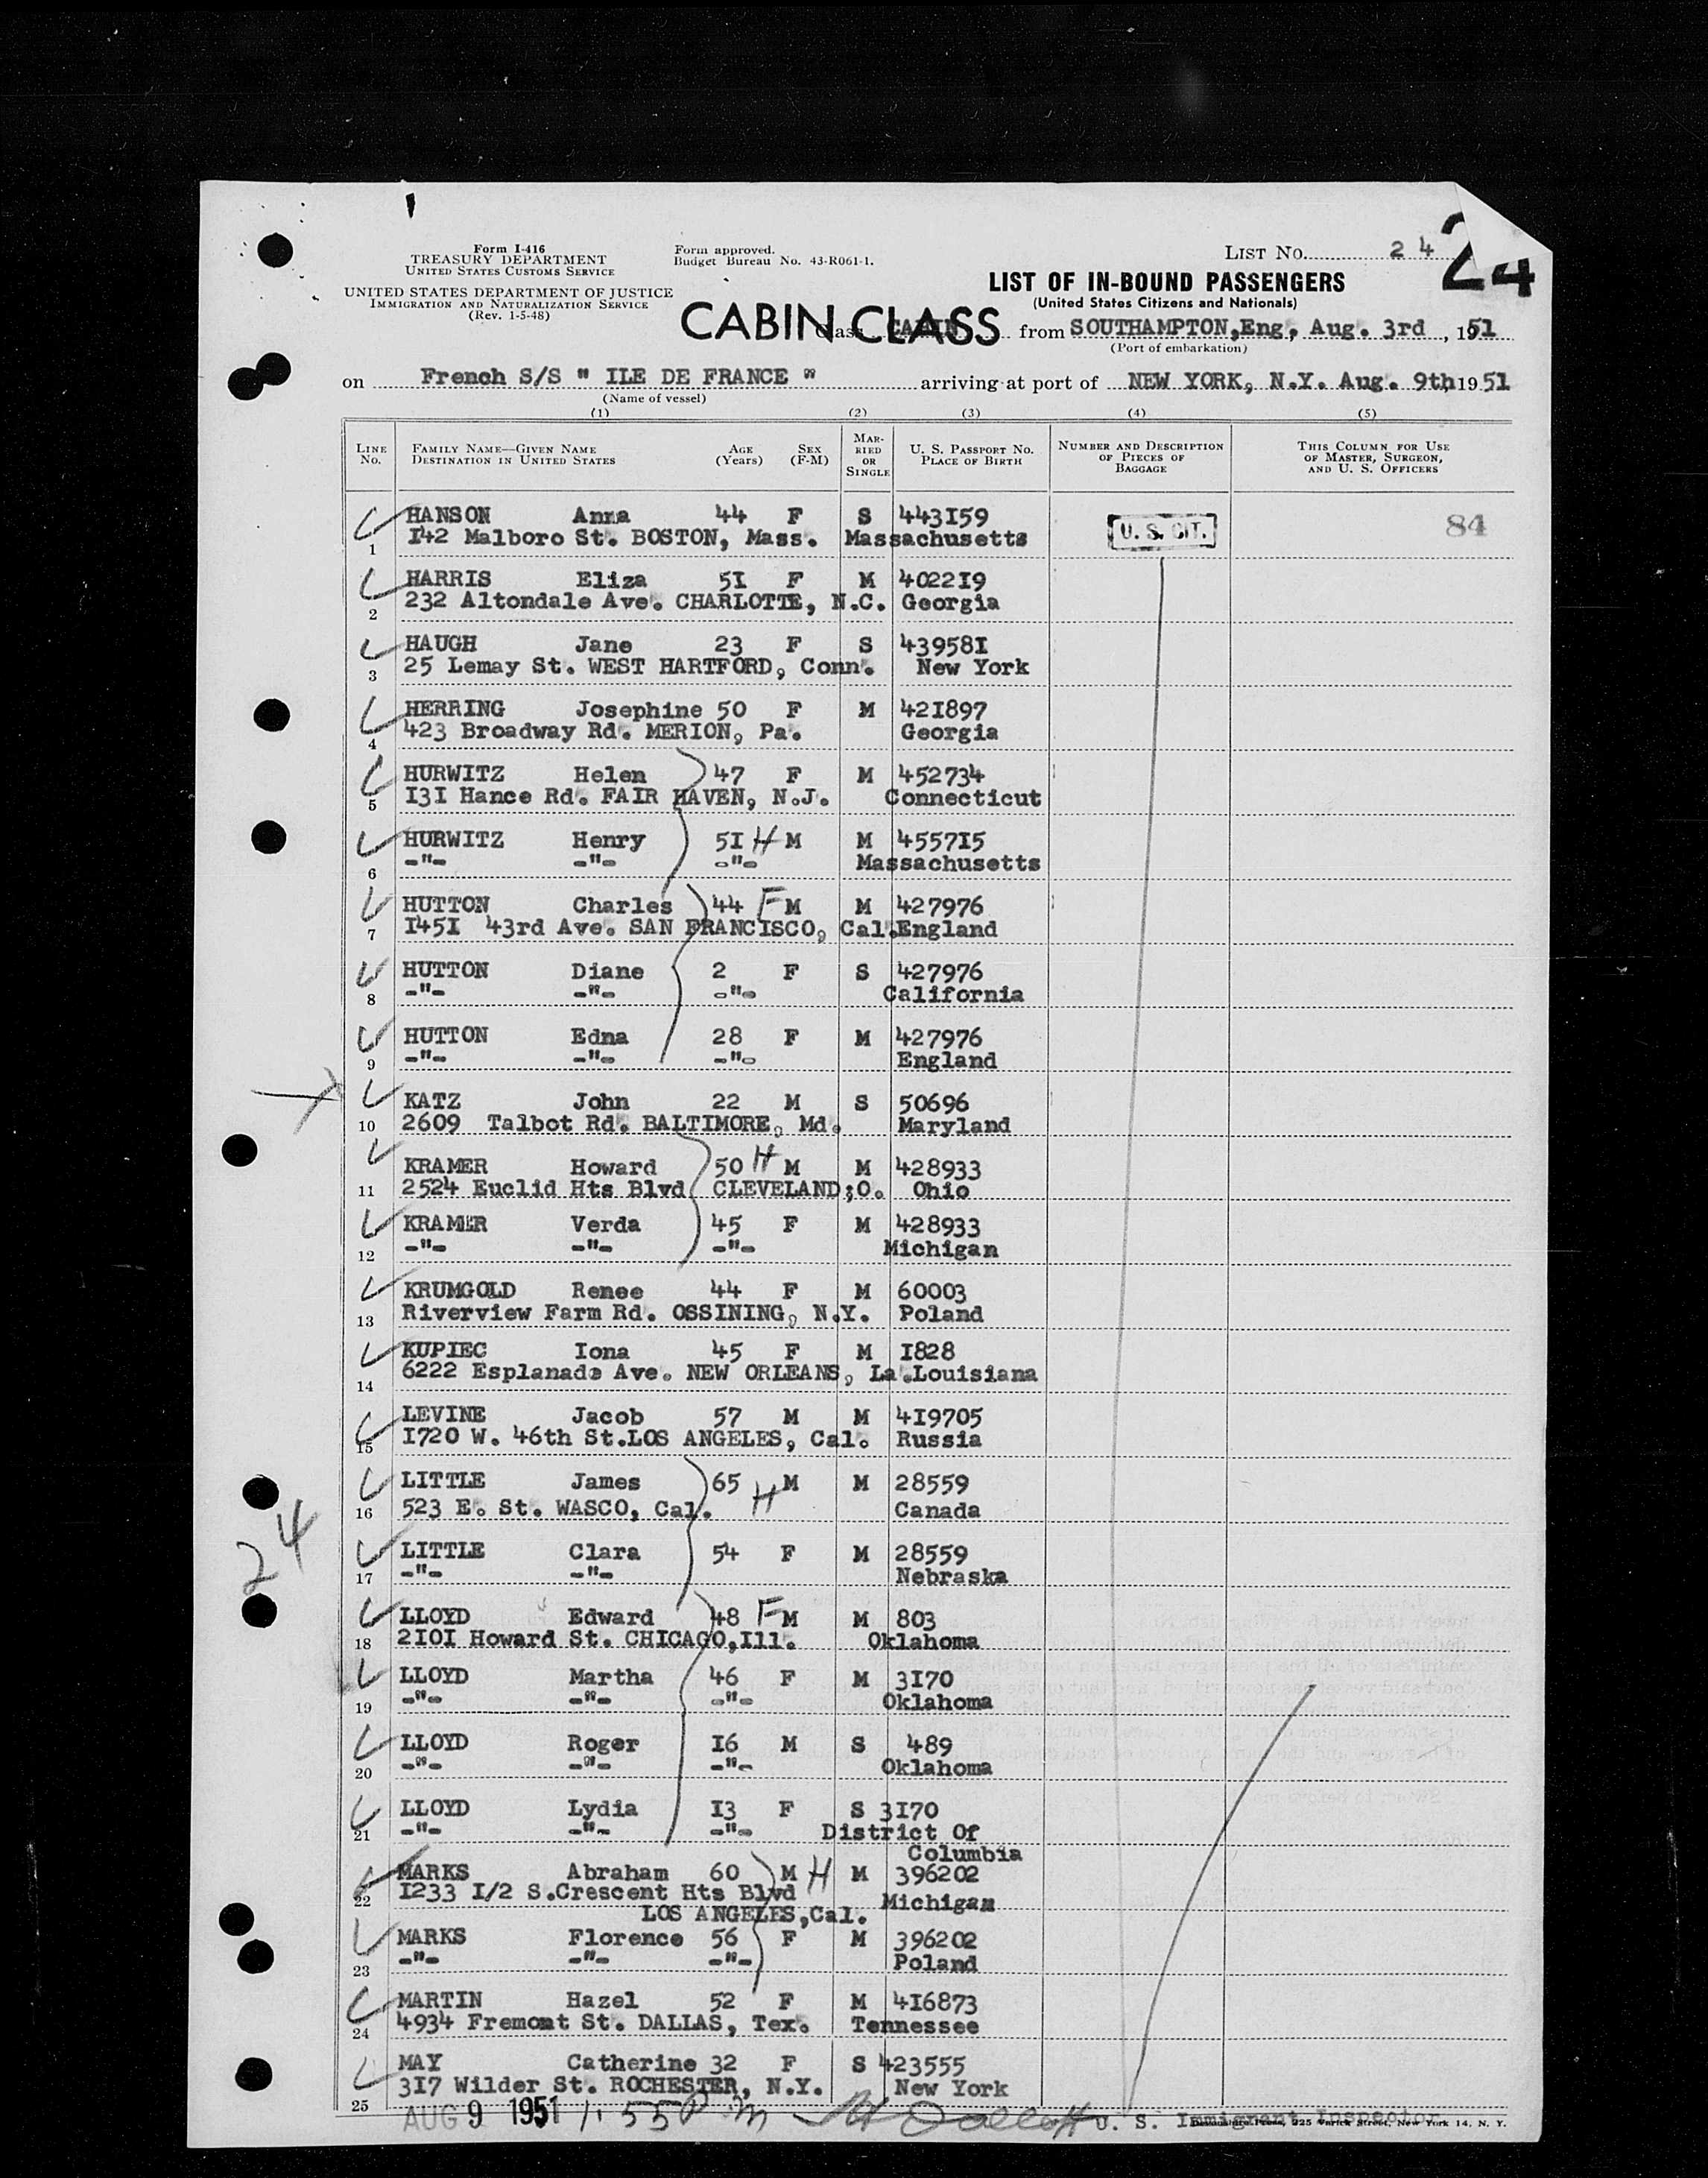 Form I-416
TREASURY DEPARTMENT
UNITED STATES CUSTOMS SERVICE
UNITED STATES DEPARTMENT OF JUSTICE
IMMIGRATION AND NATURALIZATION SERVICE
(Rev. 1-5-48)
Form approved.
Budget Bureau No. 43-R061-1.
LIST No. 24
24
LIST OF IN-BOUND PASSENGERS
(United States Citizens and Nationals)
CABIN CLASS
Class CABIN from SOUTHAMPTON,Eng, Aug. 3rd , 1951
(Port of embarkation)
on French S/S " ILE DE FRANCE " arriving at port of NEW YORK, N.Y. Aug. 9th 1951
(Name of vessel)
(1) (2) (3) (4) (5)
LINE No. FAMILY NAME—GIVEN NAME DESTINATION IN UNITED STATES AGE (Years) SEX (F-M) MARRIED OR SINGLE U. S. PASSPORT No. PLACE OF BIRTH NUMBER AND DESCRIPTION OF PIECES OF BAGGAGE THIS COLUMN FOR USE OF MASTER, SURGEON, AND U. S. OFFICERS
HANSON Anna 44 F S 443I59 U. S. CIT. 84
1 I42 Malboro St. BOSTON, Mass. Massachusetts
HARRIS Eliza 5I F M 4022I9
2 232 Altondale Ave. CHARLOTTE, N.C. Georgia
HAUGH Jane 23 F S 43958I
3 25 Lemay St. WEST HARTFORD, Conn. New York
HERRING Josephine 50 F M 42I897
4 423 Broadway Rd. MERION, Pa. Georgia
HURWITZ Helen 47 F M 452734
5 I3I Hance Rd. FAIR HAVEN, N.J. Connecticut
HURWITZ Henry 5I H M M 4557I5
6 -"- -"- -"- Massachusetts
HUTTON Charles 44 F M M 427976
7 I45I 43rd Ave. SAN FRANCISCO, Cal. England
HUTTON Diane 2 F S 427976
8 -"- -"- -"- California
HUTTON Edna 28 F M 427976
9 -"- -"- -"- England
KATZ John 22 M S 50696
10 2609 Talbot Rd. BALTIMORE, Md. Maryland
KRAMER Howard 50 H M M 428933
11 2524 Euclid Hts Blvd CLEVELAND;O. Ohio
KRAMER Verda 45 F M 428933
12 -"- -"- -"- Michigan
KRUMGOLD Renee 44 F M 60003
13 Riverview Farm Rd. OSSINING, N.Y. Poland
KUPIEC Iona 45 F M I828
14 6222 Esplanade Ave. NEW ORLEANS, La. Louisiana
LEVINE Jacob 57 M M 4I9705
15 I720 W. 46th St.LOS ANGELES, Cal. Russia
LITTLE James 65 H M M 28559
16 523 E. St. WASCO, Cal. Canada
24
LITTLE Clara 54 F M 28559
17 -"- -"- Nebraska
LLOYD Edward 48 F M M 803
18 2I0I Howard St. CHICAGO,Ill. Oklahoma
LLOYD Martha 46 F M 3I70
19 -"- -"- -"- Oklahoma
LLOYD Roger I6 M S 489
20 -"- -"- -"- Oklahoma
LLOYD Lydia I3 F S 3I70
21 -"- -"- -"- District Of
Columbia
MARKS Abraham 60 M H M 396202
22 I233 I/2 S.Crescent Hts Blvd Michigan
LOS ANGELES,Cal.
MARKS Florence 56 F M 396202
23 -"- -"- -"- Poland
MARTIN Hazel 52 F M 4I6873
24 4934 Fremont St. DALLAS, Tex. Tennessee
MAY Catherine 32 F S 423555
25 3I7 Wilder St. ROCHESTER, N.Y. New York
AUG 9 1951 1:55 P m U. S. Immigrant Inspector
225 Varick Street, New York 14, N. Y.